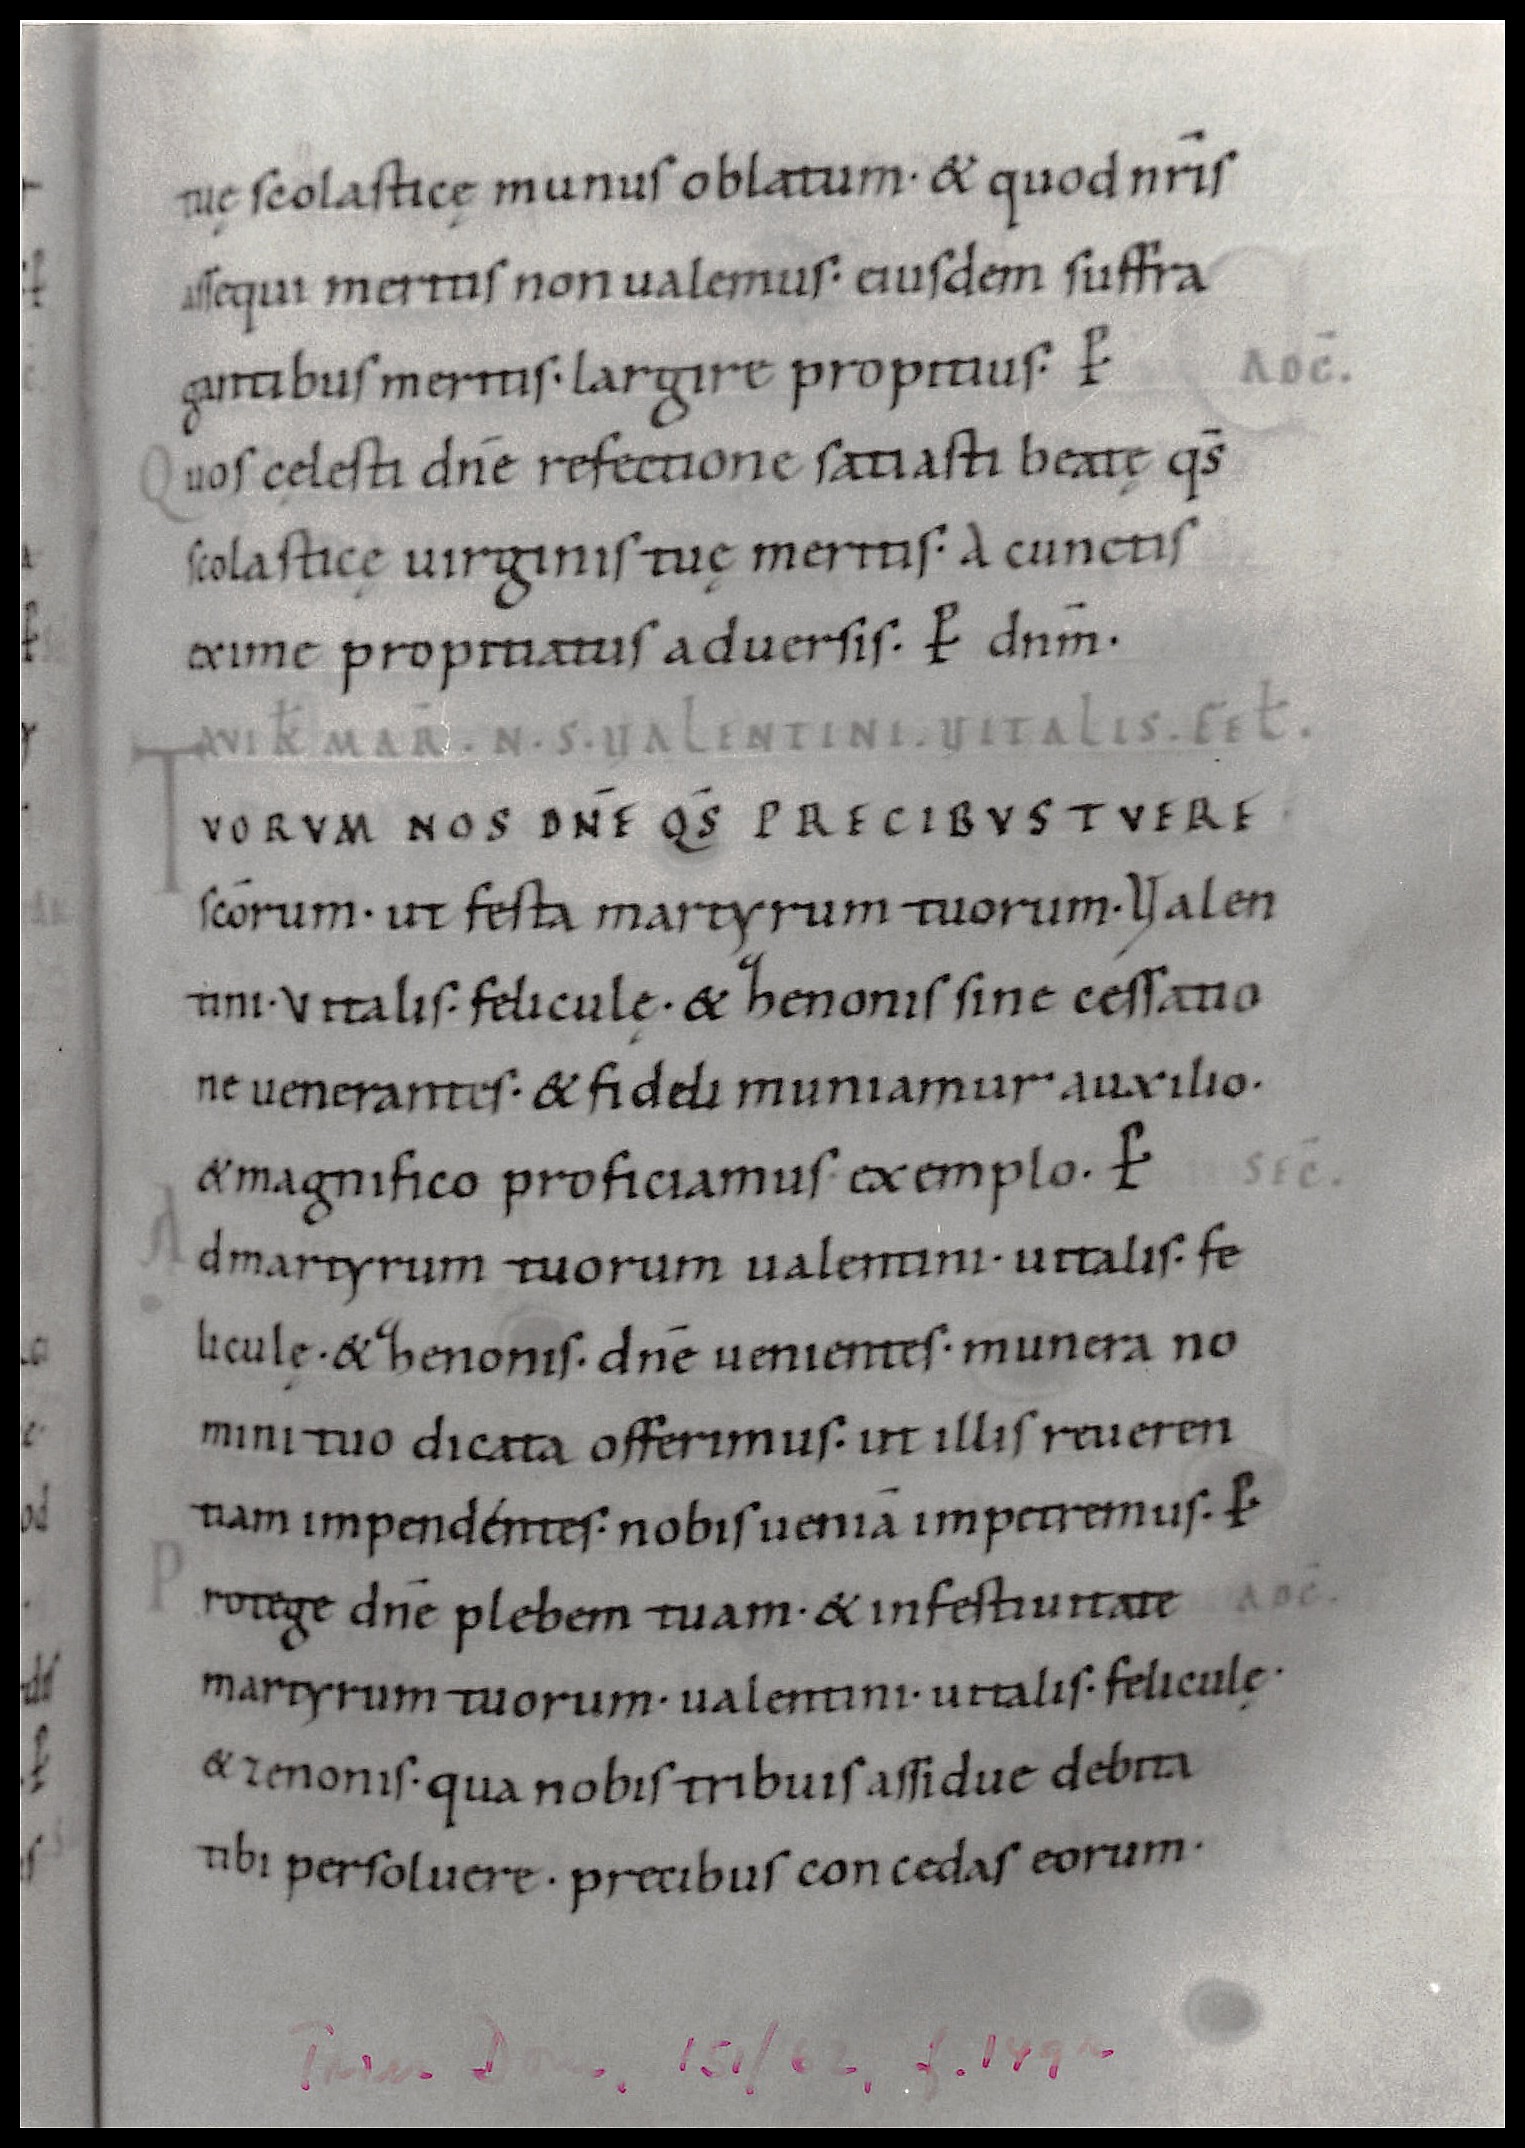 tuę scolasticę munus oblatum· & quod nr̄is
assequi meritis non ualemus· eiusdem suffra
gantibus meritis· largire propitius· P̵ ADC̄.
Quos cęlesti dn̄e refectione satiasti beatę qs̄
scolasticę uirginis tuę meritis· A cunctis
exime propitiatus aduersis· P̵ dnm̄·
XVI KL MAR̄. N. S. VALENTINI. VITALIS. FEL.
TVORVM NOS DN̄E QS̄ PRECIBVS TVERE
sc̄orum· ut festa martyrum tuorum· Valen
tini· Vitalis· feliculę· & henonis sine cessatio
ne uenerantes· & fideli muniamur auxilio·
& magnifico proficiamus exemplo· P̵ SEC̄.
Ad martyrum tuorum ualentini· uitalis· fe
liculę· & henonis· dn̄e uenientes· munera no
mini tuo dicata offerimus· ut illis reueren
tiam impendéntes· nobis ueniā impetremus· P̵
Protege dn̄e plebem tuam· & in festiuitate ADC̄.
martyrum tuorum· ualentini· uitalis· feliculę·
& zenonis· qua nobis tribuis assidue debita
tibi persoluere· precibus concedas eorum·
151/62, f. 149r